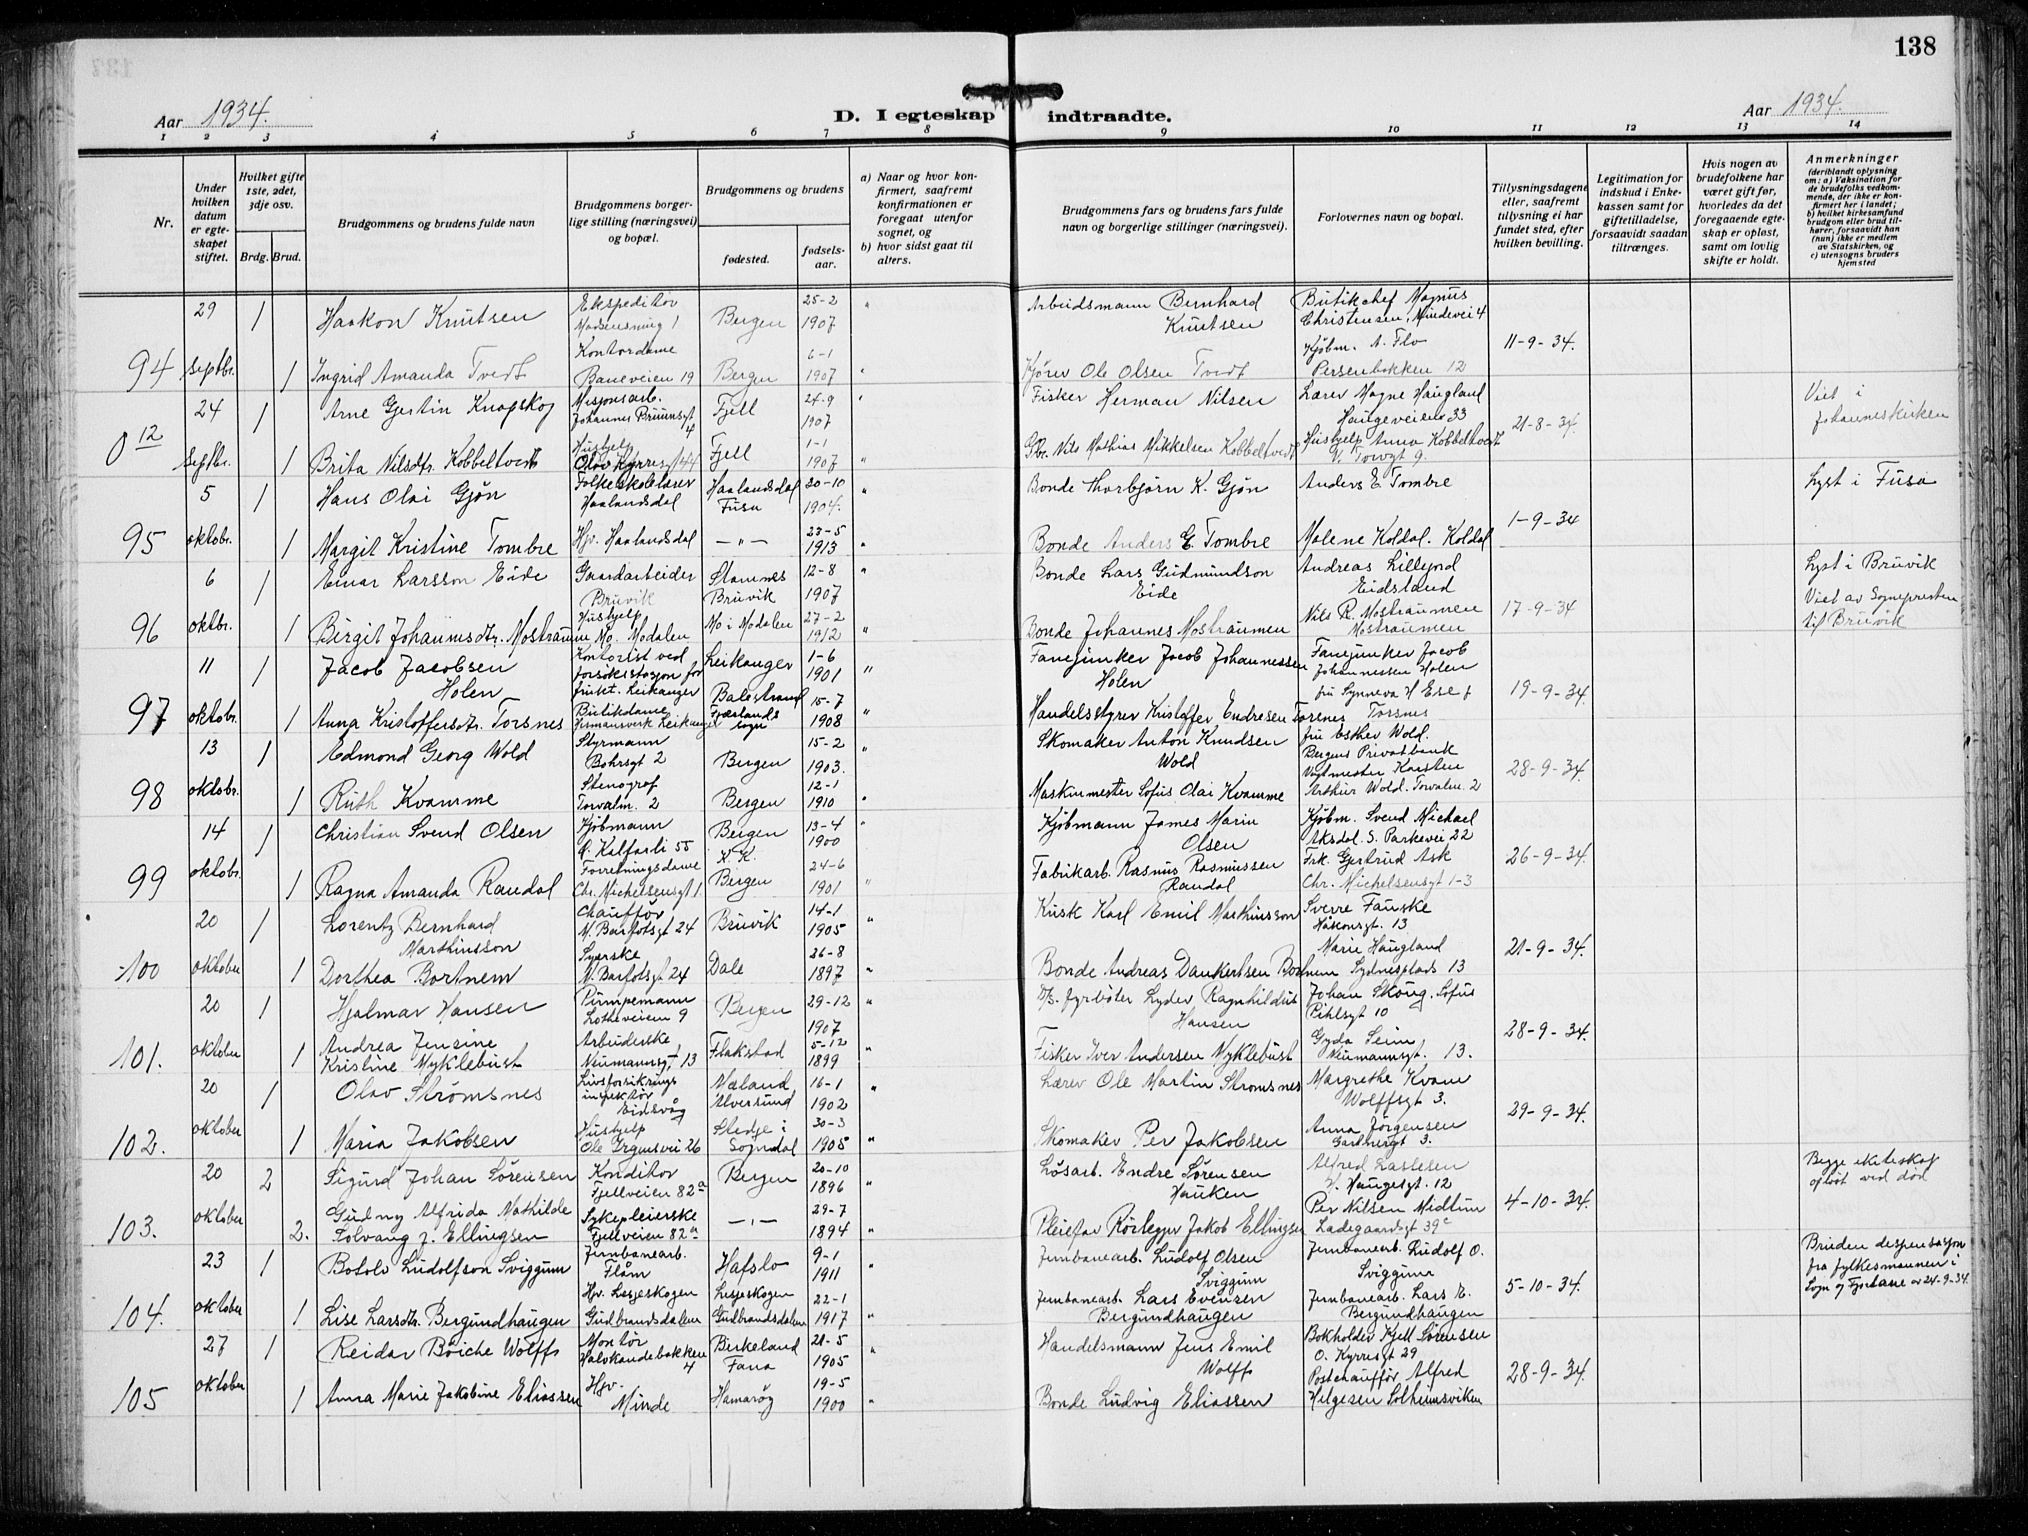 138
Aar 1934.
D. I egteskap indtraadte.
Aar 1934.
1 2 3 4 5 6 7 8 9 10 11 12 13 14
Nr.
Under hvilken datum er egteskapet stiftet.
Hvilket gifte 1ste, 2det, 3dje osv.
Brdg. Brud.
Brudgommens og brudens fulde navn
Brudgommens borgerlige stilling (næringsvei) og bopæl.
Brudgommens og brudens
fødested.
fødselsaar.
a) Naar og hvor konfirmert, saafremt konfirmationen er foregaat utenfor sognet, og
b) hvor sidst gaat til alters.
Brudgommens fars og brudens fars fulde navn og borgerlige stillinger (næringsvei).
Forlovernes navn og bopæl.
Tillysningsdagene eller, saafremt tillysning ei har fundet sted, efter hvilken bevilling.
Legitimation for indskud i Enkekassen samt for giftetilladelse, forsaavidt saadan tiltrænges.
Hvis nogen av brudefolkene har været gift før, hvorledes da det foregaaende egteskap er opløst, samt om lovlig skifte er holdt.
Anmerkninger (deriblandt oplysning om: a) Vaksination for de brudefolks vedkommende, der ikke er konfirmert her i landet; b) hvilket kirkesamfund brudgom eller brud tilhører, forsaavidt han (hun) ikke er medlem av Statskirken, og c) utensogns bruders hjemsted
29 1 Haakon Knutsen Ekspeditør 1 Bergen 25-2 1907 " Arbeidsmann Bernhard Knutsen Butikchef Magnus Christensen, Mindevei 4
94 Septbr. 1 Ingrid Amanda Tvedt Kontordame Baneveien 19 Bergen 6-1 1907 " Kjører Ole Olsen Tvedt Kjøbm. A. Flo Persenbakken 12 11-9-34.
24 1 Arne Gjertin Knapskog Misjonsarb. Johannes Bruunsgt 4 Fjell 24-9 1907 " Fisker Herman Nilsen Lærer Magne Haugland Haugeveien 33 Viet i Johanneskirken
0 12 Septbr. 1 Brita Nilsdtr. Kobbeltvedt Hushjelp Olav Kyrresgt 44 Fjell 1-1 1907 " Gbr. Nils Mathias Mikkelsen Kobbeltvedt Hushjelp Anna Kobbeltvedt V. Torvgt 9. 21-8-34.
5 1 Hans Olai Gjøn Folkeskolelærer Haalandsdal Haalandsdal Fusa 20-10 1904. " Bonde Thorbjørn K. Gjøn Anders E. Tombre Lyst i Fusa
95 oktobr. 1 Margit Kristine Tombre Hjv. Haalandsdal — " — 23-5 1913 " Bonde Anders E. Tombre Malene Koldal. Koldal 1-9-34
6 1 Einar Larsson Eide Gaardarbeider Bruvik Stamnes Bruvik 12-8 1907 " Bonde Lars Gudmundson Eide Andreas Lillejord Eidsland Lyst i Bruvik
96 oktbr. 1 Birgit Johannesdtr. Mostraumen Hushjelp Mo. Modalen Mo i Modalen 27-2 1912 " Bonde Johannes Mostraumen Nils R. Mostraumen Mostraumen 17-9-34 Viet av Sognepresten til Bruvik
11 1 Jacob Jacobsen Holen Kontorist ved forsøksstasjon for frukt. Leikanger Leikanger 1-6 1901 " Fanejunker Jacob Johannessen Holen Fanejunker Jacob Johannessen Holen
97 oktobr. 1 Anna Kristoffersdtr. Torsnes Butikdame Hermansverk Leikanger Balestrand Fjærlands sogn 15-7 1908 " Handelsstyrer Kristoffer Endresen Torsnes fru Synneva H Ese f Torsnes 19-9-34.
13 1 Edmond Georg Wold Styrmann Bohrsgt 2 Bergen 15-2 1903. " Skomaker Anton Knudsen Wold fru Esther Wold. Bergens Privatbank
98 oktobr. 1 Ruth Kvamme Stenograf Torvalm. 2 Bergen 12-1 1910 " Maskinmester Sofus Olai Kvamme Vagtmester Karsten Arthur Wold. Torvalm. 2 28-9-34.
14 1 Christian Svend Olsen Kjøbmann Ø. Kalfarli 55 Bergen 13-4 1900 " Kjøbmann James Marin Olsen Kjøbm. Svend Michael Aksdal. S. Parkevei 22
99 oktobr. 1 Ragna Amanda Randal Forretningsdame Chr. Michelsensgt 1 K.K. Bergen 24-6 1901 " Fabrikarb. Rasmus Rasmussen Randal Frk. Gjertrud Ask Chr. Michelsensgt 1-3 26-9-34.
20 1 Lorentz Bernhard Marthinsson Chauffør M. Barfotsgt 24 Bruvik 14-1 1905 " Kusk Karl Emil Marthinsson Sverre Fauske Håkonsgt. 13
100 oktober 1 Dorthea Bortnem Syerske M. Barfotsgt 24 Dale 26-8 1897 " Bonde Andreas Dankertsen Bortnem Marie Haugland Sydnesplads 13 21-9-34.
20 1 Hjalmar Hansen Pumpemann Lotheveien 9 Bergen 29-12 1907 " D/s. fyrbøter Lyder Ragnhildus Hansen Johan Skoug. Sofus Pihlsgt 10
101. oktober 1 Andrea Jensine Kristine Myklebust Arbeiderske Neumannsgt. 13 Flakstad 5-12 1899 " Fisker Iver Andersen Myklebust Gyda Seim Neumannsgt. 13. 28-9-34.
20 1 Olav Strømsnes Livsforsikrings inspektør Eidsvåg Næland Alversund 16-1 1902 " Lærer Ole Martin Strømsnes Margrethe Kvam Wolffsgt 3.
102. oktober 1 Maria Jakobsen Hushjelp Ole Irgensvei 26 Stedje i Sogndal 30-3 1905 " Skomaker Per Jakobsen Anna Jørgensen Gartnergt 3. 29-9-34.
20 2 Sigurd Johan Sørensen Konditor Fjellveien 82a Bergen 20-10 1896 " Løsarb. Endre Sørensen Hauken Alfred Lastesen H. Haugesgt. 12 Begge ekteskap opløst ved død
103. oktober 2. Gudny Alfrida Mathilde Solvang f. Ellingsen Sykepleierske Fjellveien 82a — " — 29-7 1894 " Pleiefar Rørlegger Jakob Ellingsen Per Nilsen Midttun Ladegaardsgt 39c 4-10-34.
23 1 Botolv Ludolfson Sviggum Jernbanearb. Flåm Hafslo 9-1 1911 " Jernbanearb. Ludolf Olsen Sviggum Jernbanearb. Ludolf O. Sviggum Bruden despensasjon fra fylkesmannen i Sogn og Fjordane av 24-9-34.
104. oktober 1 Lise Larsdtr. Bergundhaugen Hjv. Lesjeskogen Gudbrandsdalen Lesjeskogen Gudbrandsdalen 22-1 1917 " Jernbanearb. Lars Evensen Bergundhaugen Jernbanearb. Lars E. Bergundhaugen 5-10-34.
27 1 Reidar Bøiche Wolff Montør Halvkandebakken 4 Birkeland Fana 21-5 1905 " Handelsmann Jens Emil Wolff Bokholder Kjell Sørensen O. Kyrresgt 29
105 oktober 1 Anna Marie Jakobine Eliassen Hjv. Minde Hamarøy 19-5 1900 " Bonde Ludvig Eliassen Postchauffør Alfred Helgesen Solheimsviken 28-9-34.